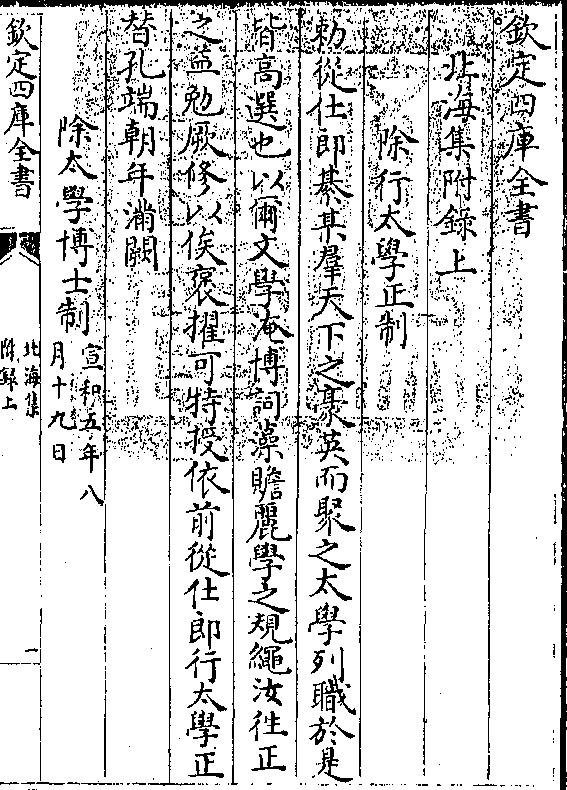 欽定四庫全書
北海集附錄上
除行太學正制
勅從仕郎綦某羣天下之豪英而聚之太學列職於是
皆高選也以爾文學淹博詞藻贍麗學之規繩汝往正
之益勉厥修以俟褒擢可特授依前從仕郎行太學正
替孔端朝年滿闕
除太學博士制宣和五年八
月十九日
欽定四庫全書
北海集
附錄上
一